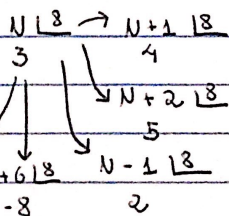 N 8 → N + 1 8
3 4
N + 2 8
5
+6 8 N - 1 8
-8 2